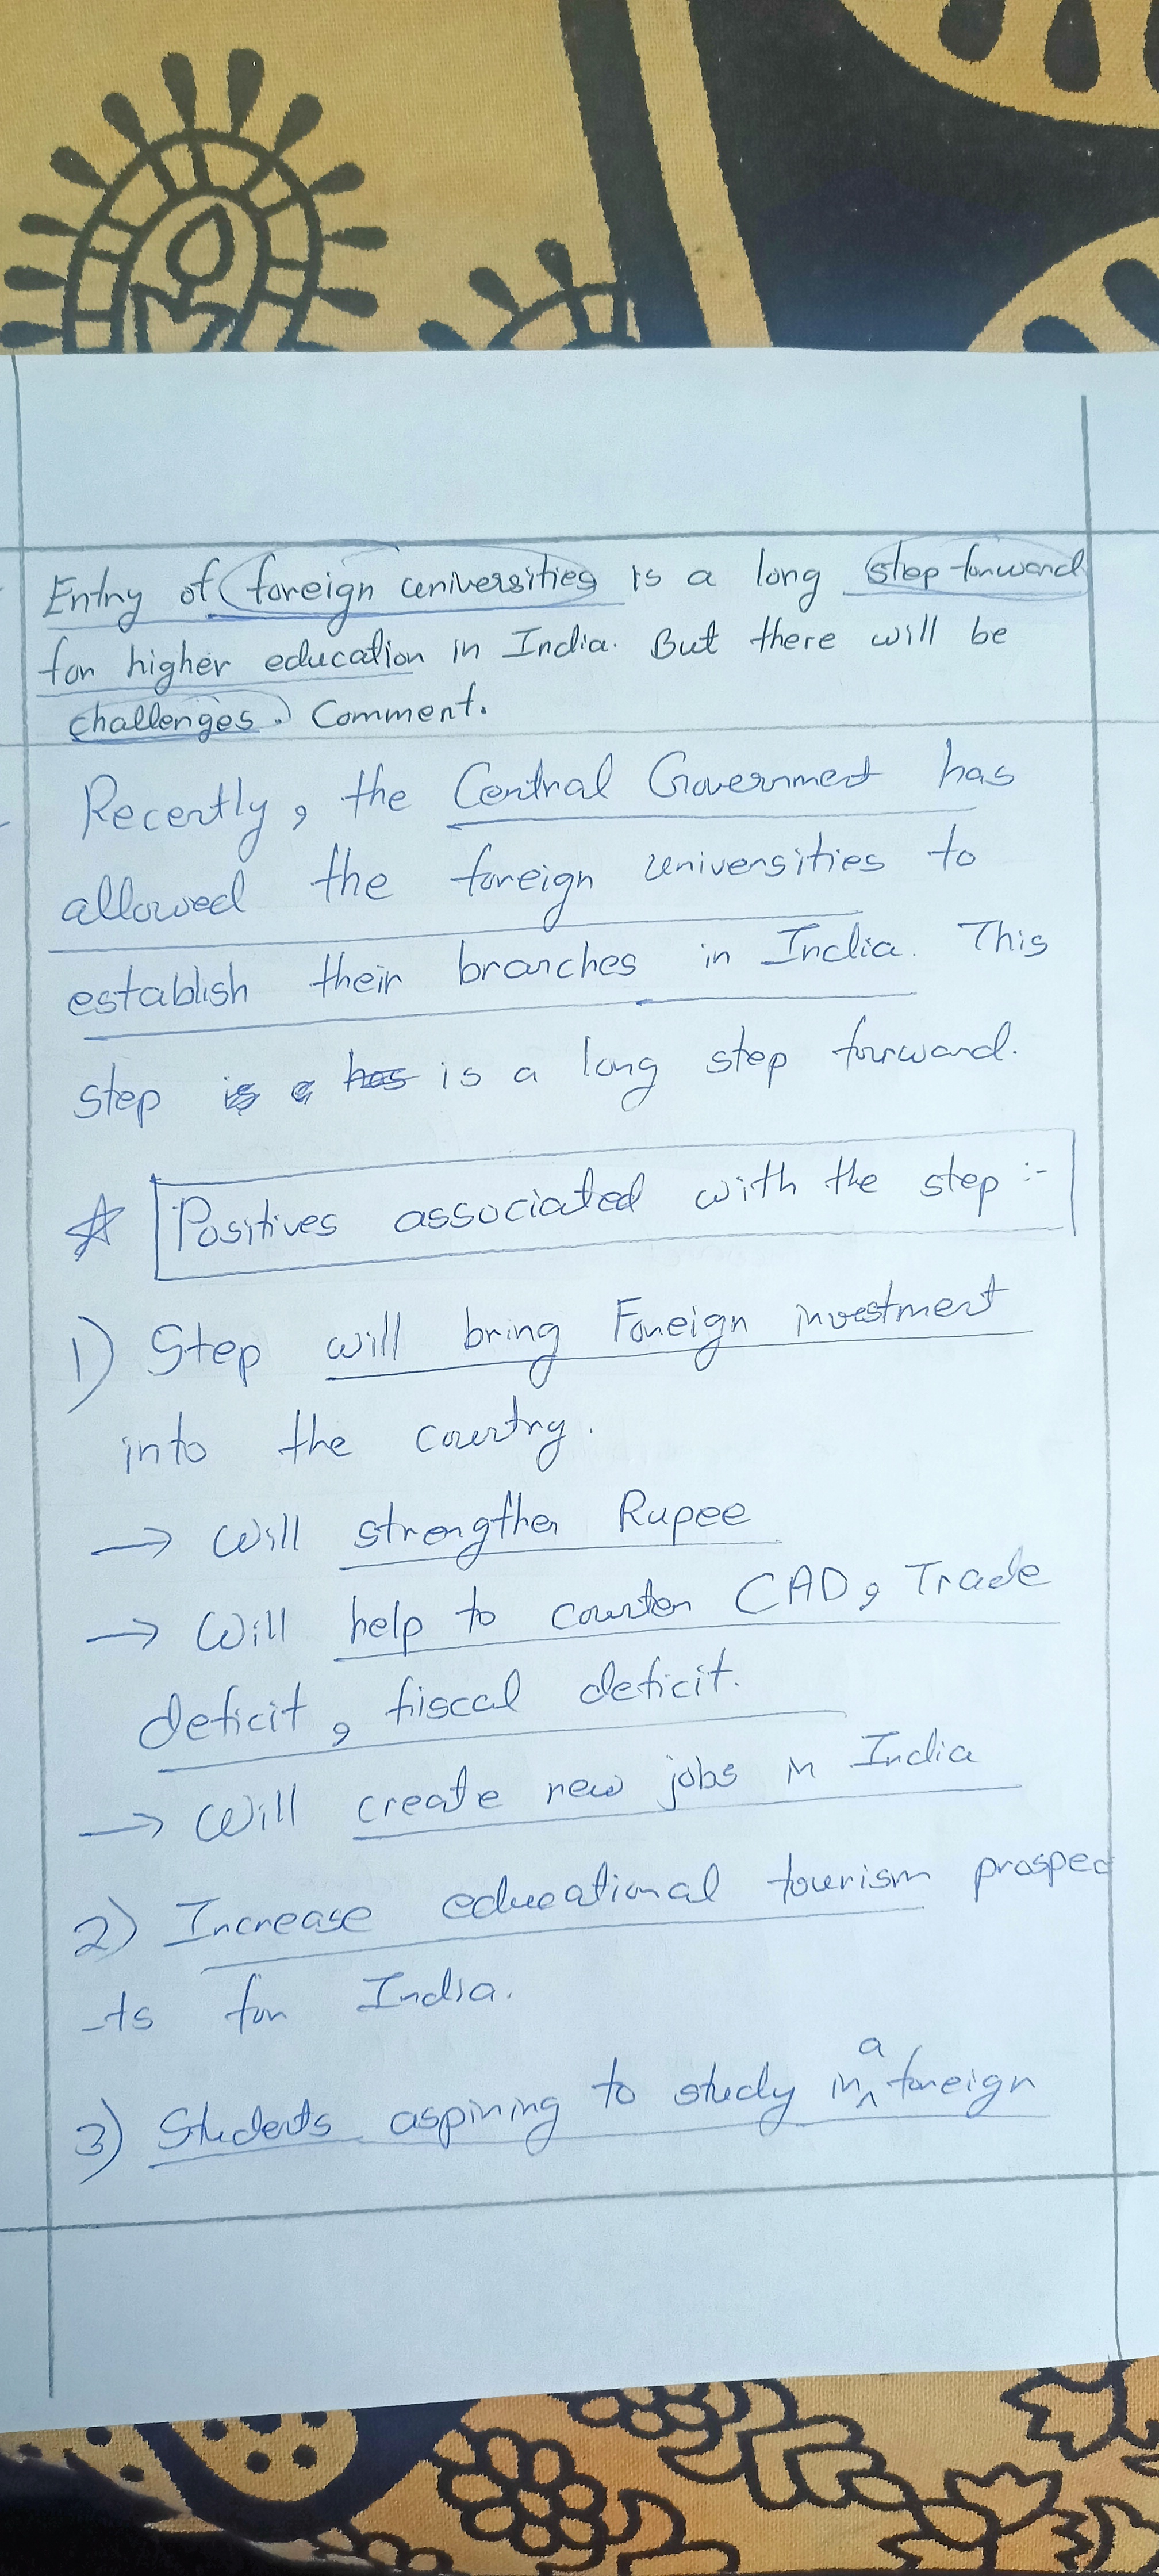 Entry of foreign universities is a long step forward
for higher education in India. But there will be
challenges. Comment.
Recently, the Central Government has
allowed the foreign universities to
establish their branches in India. This
step is a has is a long step forward.
☆ Positives associated with the step :-
1) Step will bring Foreign investment
into the country.
→ Will strengthen Rupee
→ Will help to counter CAD, Trade
deficit, fiscal deficit.
→ Will create new jobs in India
2) Increase educational tourism prospec
-ts for India.
3) Students aspining to study in a foreign